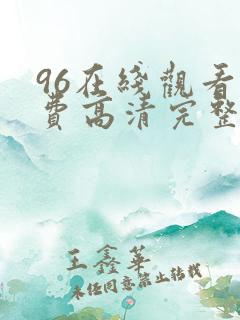 96在綫觀看
費高清完整
王鑫華
未经同意禁止转载